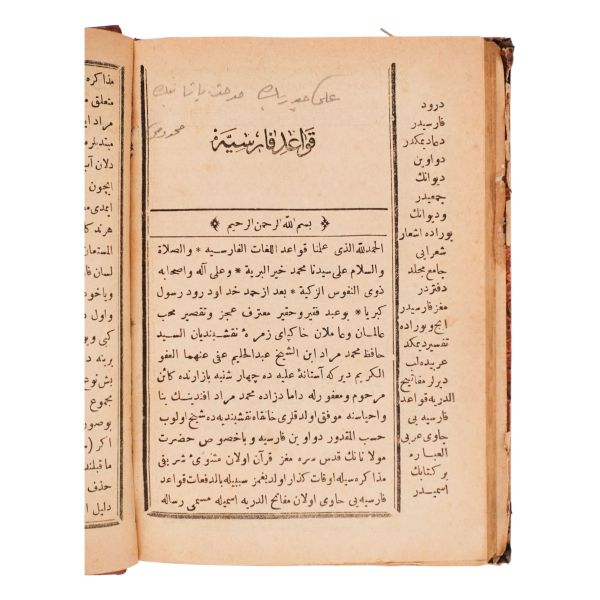 قواعد فارسیه
بسم الله الرحمن الرحیم
الحمدلله الذی علمنا قواعد اللغات الفارسیه * والصلاة
والسلام علی سیدنا محمد خیرالبریة * وعلی آله واصحابه
ذوی النفوس الزکیة * بعد ازحمد خداودرود رسول
کبریا * بوعبد فقیروحقیر معترف عجز وتقصیر محب
عالمان وعاملان خاکپای زمرهٔ نقشبندیان السید
حافظ محمد مراد ابن الشیخ عبدالحلیم عفی عنهما العفو
الکریم دیرکه آستانهٔ علیه ده چهار شنبه بازارنده کائن
مرحوم ومغفورله داما دزاده محمد مراد افندینک بنا
واحیاسنه موفق اولدقلری خانقاه نقشبندیه ده شیخ اولوب
حسب المقدور دواوین فارسیه وباخصوص حضرت
مولانانک قدس سره مغز قرآن اولان مثنوئ شریفی
مذاکره سیله اوقات کذار اولدیغمز سببیله بالدفعات قواعد
فارسیه یی حاوی اولان مفاتیح الدریه اسمیله مسمی رساله
درود
فارسیدر
دعادیمکدر
دواوین
دیوانک
جمعیدر
ودیوانک
بوراده اشعار
شعرایی
جامع مجلد
دفتردر
مغزفارسیدر
ایچ وبوراده
تفسیردیمکدر
عربیده لب
دیرلرمفاتیح
الدریه قواعد
فارسیه یی
حاوی عربی
العباره
برکتابک
اسمیدر
مذاکره
متعلق
مراد
دلان
ایچون
ایمدی
هرنه
المستعان
لسان
وباخصو
واول
کی
برینه
بش نوع
مجموع
بوصور
اکر
ماقبلند
حذف
دلیل